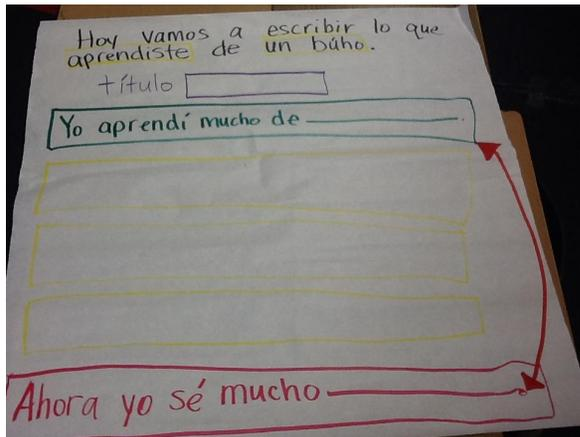 Hoy vamos a escribir lo que
aprendiste de un búho.
título
Yo aprendí mucho de.
Ahora yo sé mucho